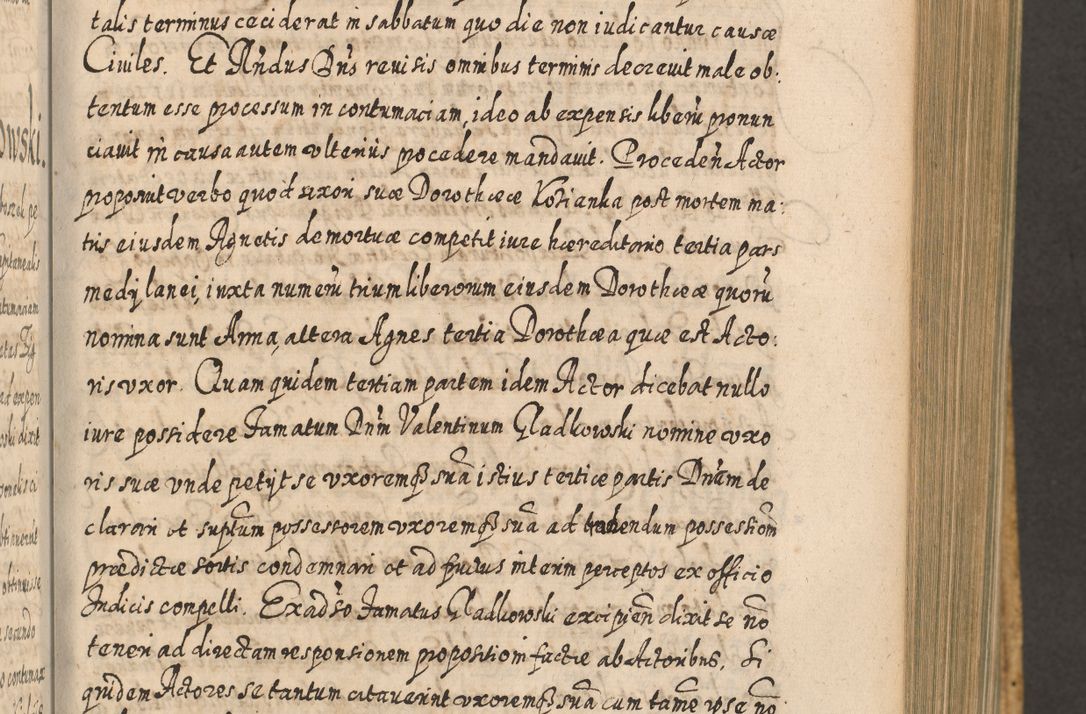 talis terminus ceciderat in sabbatum quo die non iudicantur causæ
Ciuiles. Et Rñdus Dñs reuisis omnibus terminis decreuit male ob:
tentum esse processum in contumaciam, ideo ab expensis liberũ pronun
ciauit in causa autem vlterius procedere mandauit. Proceden̄ Actor
proposuit verbo quod uxori suæ Dorotheæ Kosianka post mortem ma:
tris eiusdem Agnetis demortuæ competit iure hæreditario tertia pars
medij lanei, iuxta numerũ trium liberorum eiusdem Dorotheæ quorũ
nomina sunt Anna, altera Agnes tertia Dorothæa quæ est Acto:
ris vxor. Quam quidem tertiam partem idem Actor dicebat nullo
iure possidere Famatum Dñm Valentinum Gladkowski nomine vxo
ris suæ vnde petijt se vxoremq₃ suã istius tertiæ partis Dñam de
clarari et suptum possessorem vxoremq₃ suã ad tradendum possessiom̃
prædictæ sortis condemnari et ad fructus interim perceptos ex officio
Iudicis compelli. Ex adũso Famatus Gladkowski excipien̄ dixit se nõ
teneri ad directam responsionem propositioni factæ ab Actoribus, Si
quidem Actores se tantum citauerint vxoremq₃ suã cum tamẽ ipse nõ